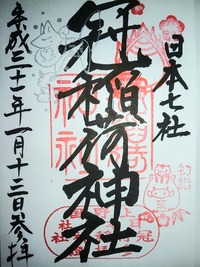 日本七社
冠稲荷神社
平成二十一年一月十三日参拝
初詣